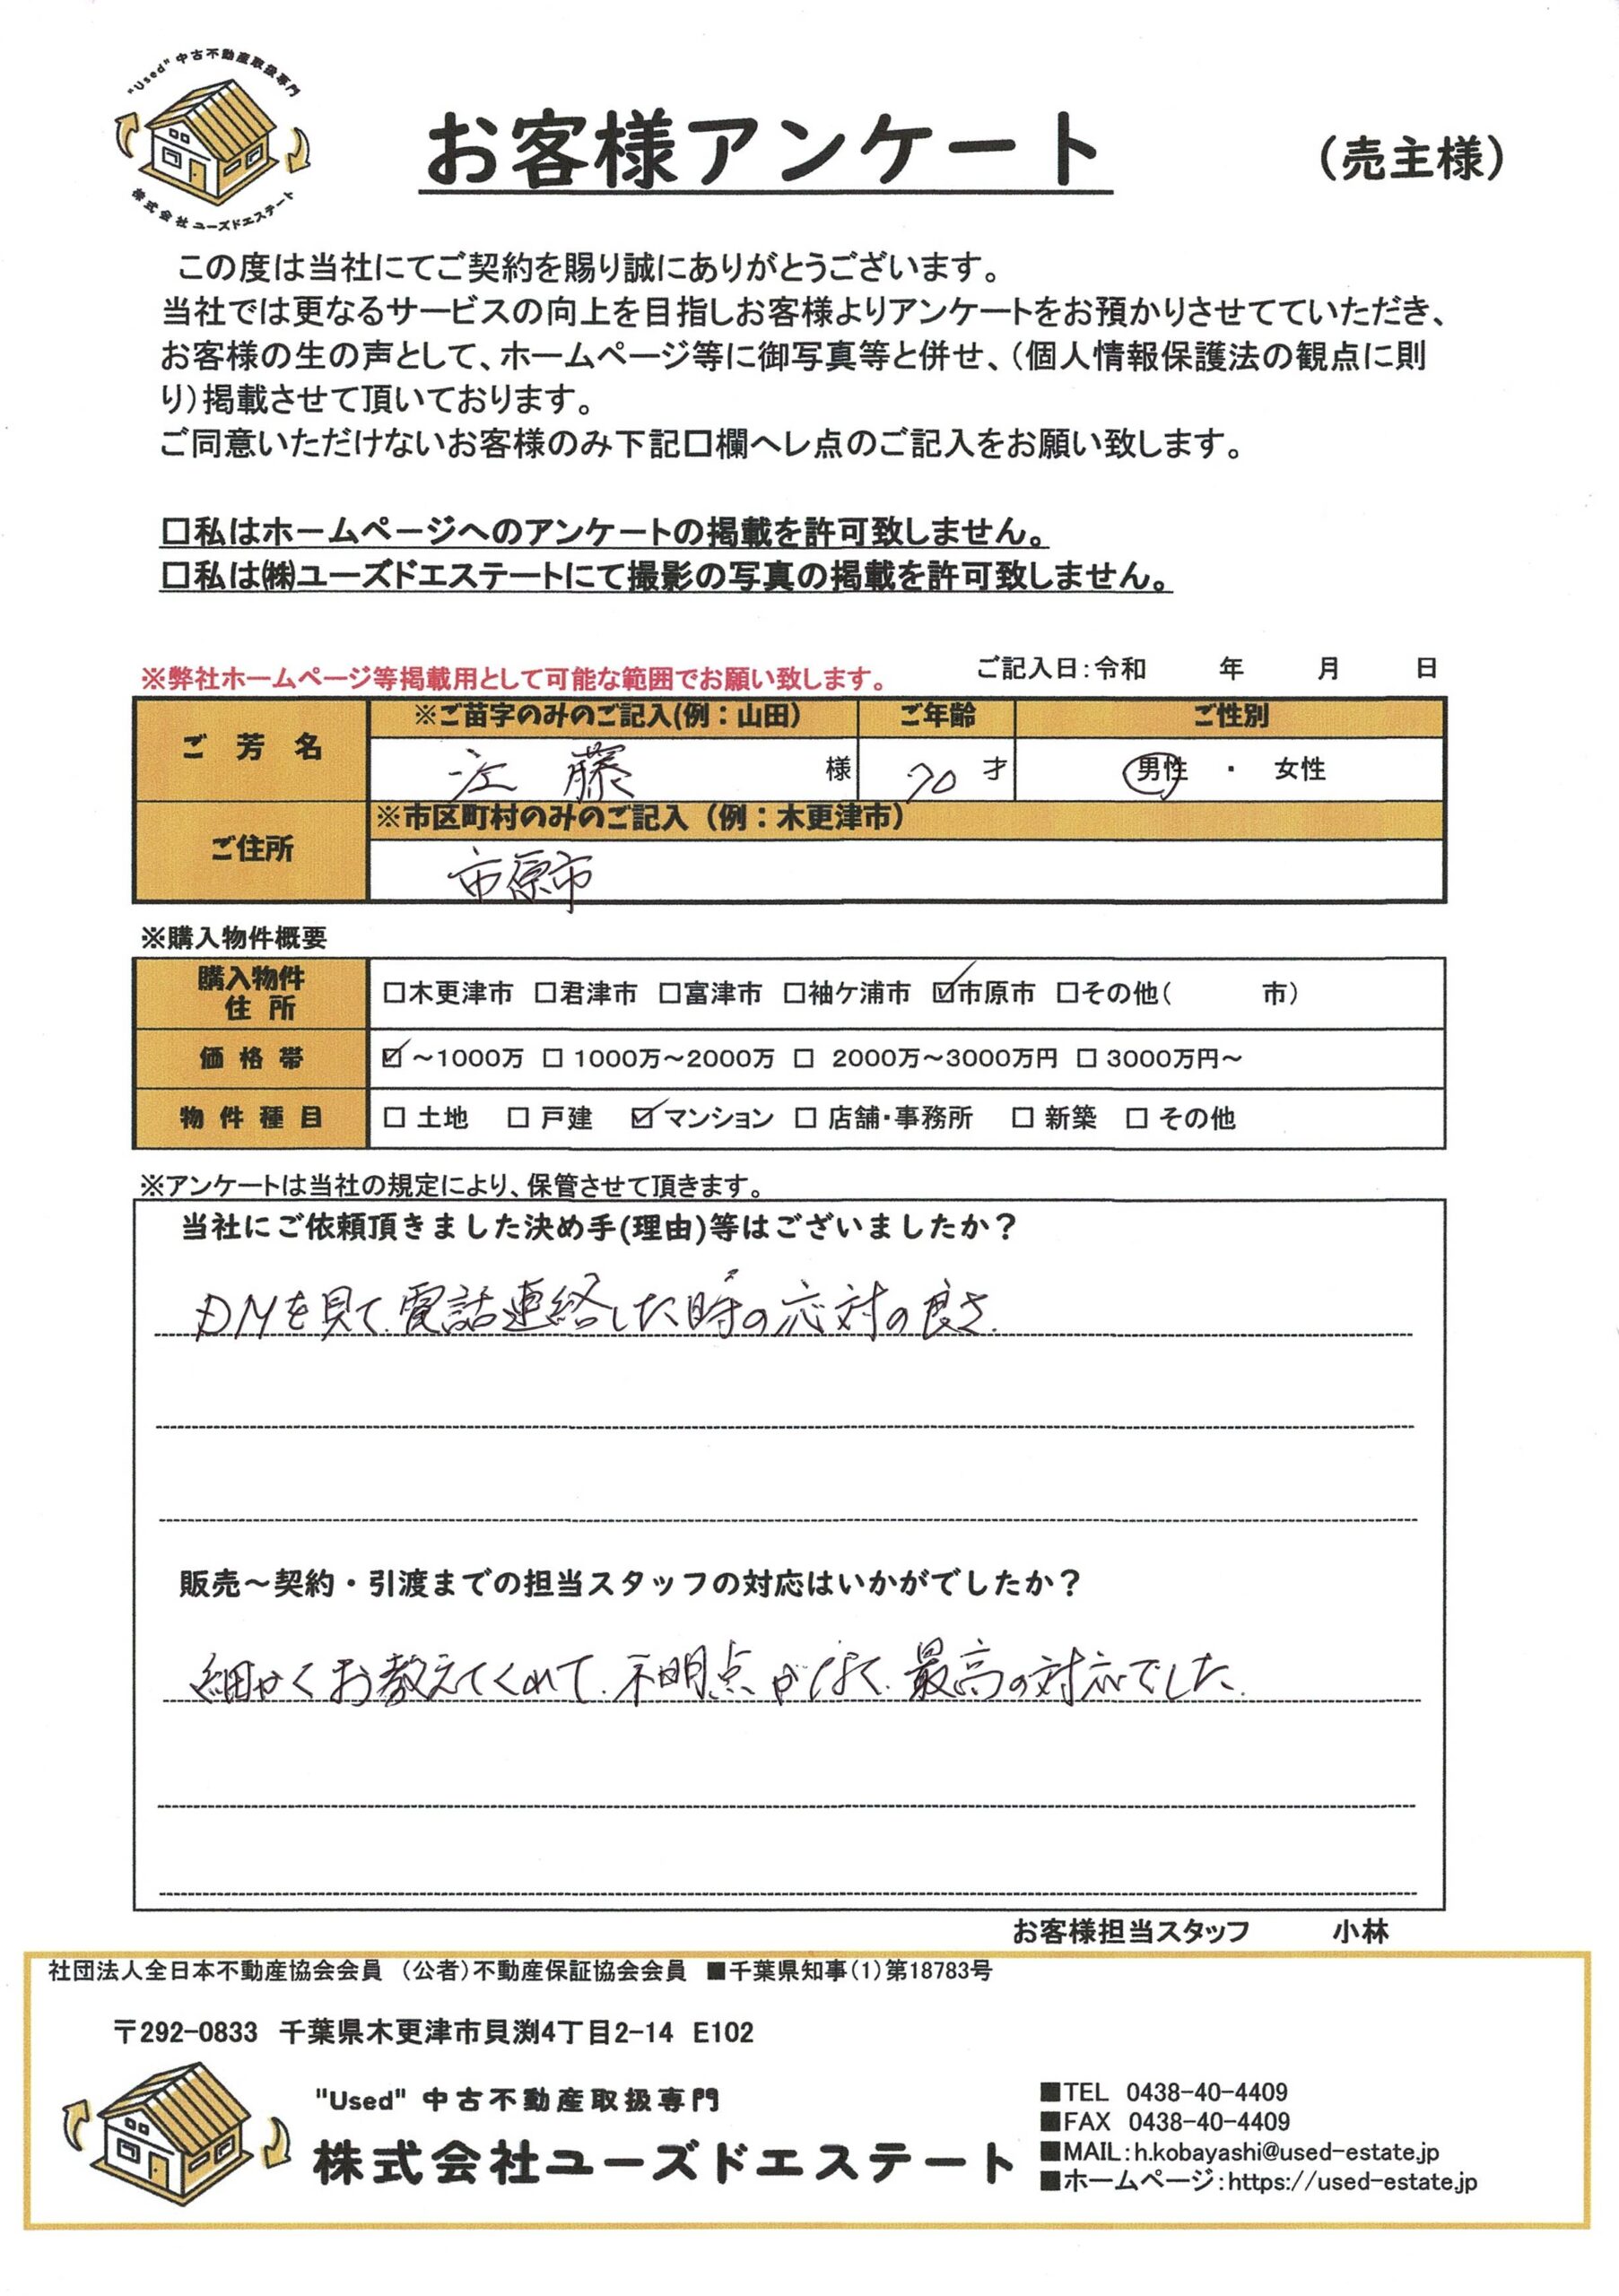 "Used" 中古不動産取扱専門
株式会社 ユーズドエステート
お客様アンケート
（売主様）
この度は当社にてご契約を賜り誠にありがとうございます。
当社では更なるサービスの向上を目指しお客様よりアンケートをお預かりさせてていただき、
お客様の生の声として、ホームページ等に御写真等と併せ、（個人情報保護法の観点に則
り）掲載させて頂いております。
ご同意いただけないお客様のみ下記口欄へレ点のご記入をお願い致します。
□私はホームページへのアンケートの掲載を許可致しません。
□私は㈱ユーズドエステートにて撮影の写真の掲載を許可致しません。
※弊社ホームページ等掲載用として可能な範囲でお願い致します。
ご記入日：令和 年 月 日
ご芳名
※ご苗字のみのご記入(例：山田)
ご年齢
ご性別
江藤 様
70 才
男性 ・ 女性
ご住所
※市区町村のみのご記入（例：木更津市）
市原市
※購入物件概要
購入物件
住所
□木更津市 □君津市 □富津市 □袖ケ浦市 ☑市原市 □その他( 市)
価格帯
☑ ～1000万 □ 1000万～2000万 □ 2000万～3000万円 □ 3000万円～
物件種目
□ 土地 □ 戸建 ☑ マンション □ 店舗・事務所 □ 新築 □ その他
※アンケートは当社の規定により、保管させて頂きます。
当社にご依頼頂きました決め手(理由)等はございましたか？
DMを見て、電話連絡した時の応対の良さ.
販売～契約・引渡までの担当スタッフの対応はいかがでしたか？
細かくお教えてくれて、不明点がなく、最高の対応でした.
お客様担当スタッフ 小林
社団法人全日本不動産協会会員 （公者）不動産保証協会会員 ■千葉県知事（1）第18783号
〒292-0833 千葉県木更津市貝渕4丁目2-14 E102
"Used" 中古不動産取扱専門
株式会社ユーズドエステート
■TEL 0438-40-4409
■FAX 0438-40-4409
■MAIL：h.kobayashi@used-estate.jp
■ホームページ：https://used-estate.jp